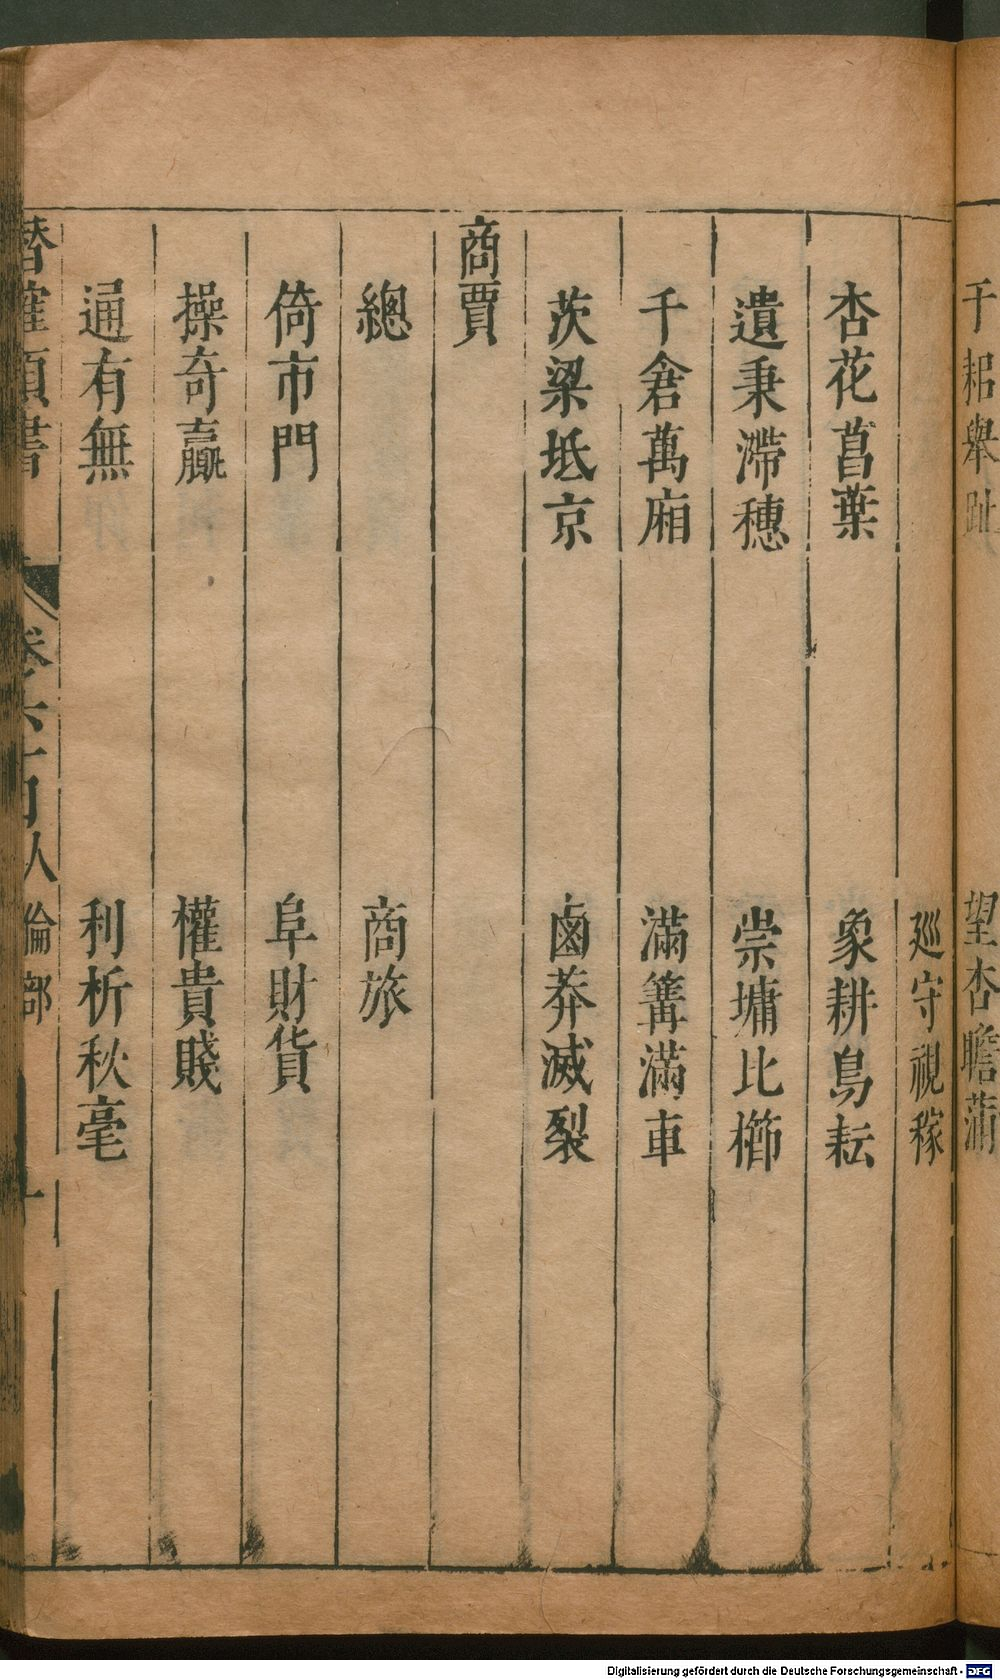 千耜舉趾
望杏瞻蒲
巡守視稼
杏花菖葉
象耕鳥耘
遺秉滯穗
崇墉比櫛
千倉萬廂
滿篝滿車
茨梁坻京
鹵莽滅裂
商賈
總
商旅
倚市門
阜財貨
操奇贏
權貴賤
通有無
利析秋毫
潛確類書
卷六十四人倫部
Digitalisierung gefördert durch die Deutsche Forschungsgemeinschaft - DFG